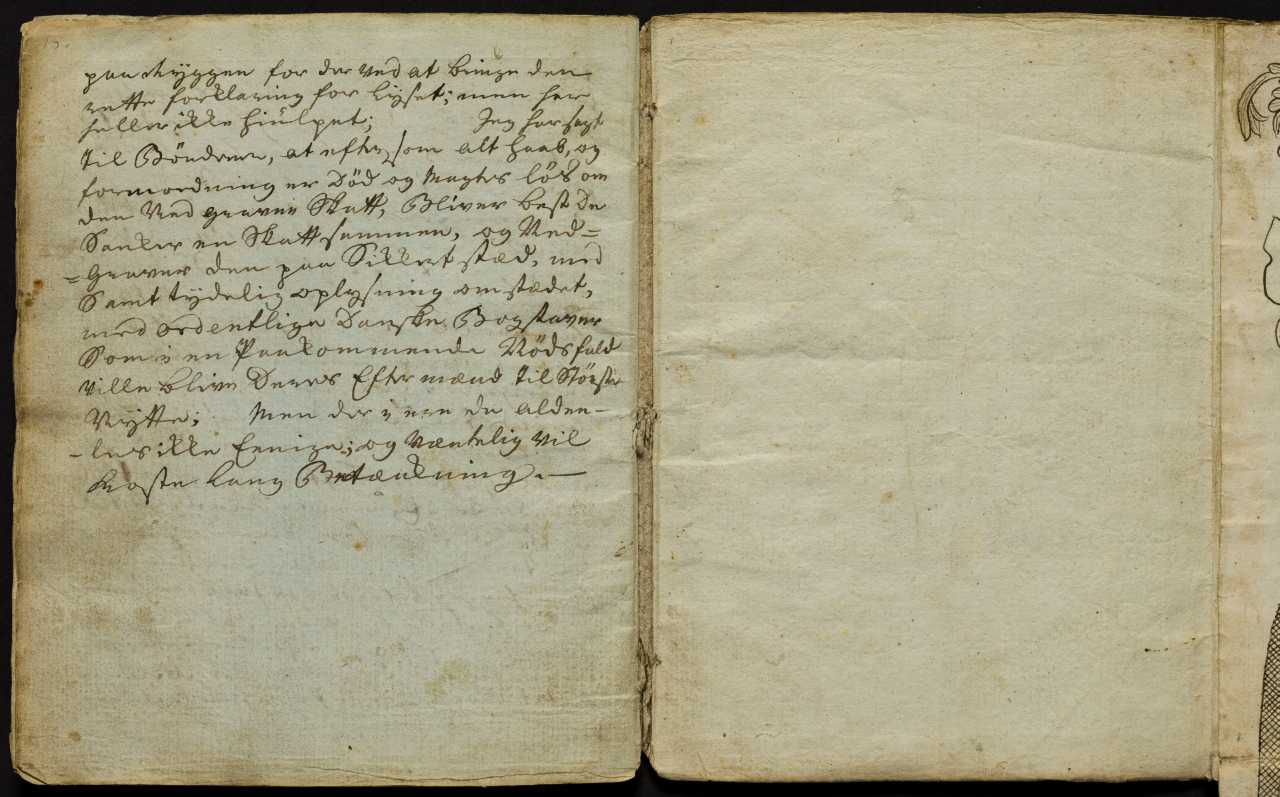 paa Ryggen for der ved at bringe den
rette forklaring for Lyset; men har
heller ikke hiulpet; Jeg har sagt
Til Bönderne, at efter som alt haab, og
formordning er Död og Magtes lös om
den Ned graven Skatt, Bliver best De
Sanker en Skatt sammen, og Ned=
=Graver den paa Sikkert stæd, med
Samt tydelig oplysning om stædet,
med ordentlige Danske Bogstaver
Som i en Paakommende Nödsfald
ville blive Deres Efter mænd Til Störste
Nÿtte; Men der i ere de alden-
-les ikke Eenige; og væntelig vil
koste lang Betænkning.—